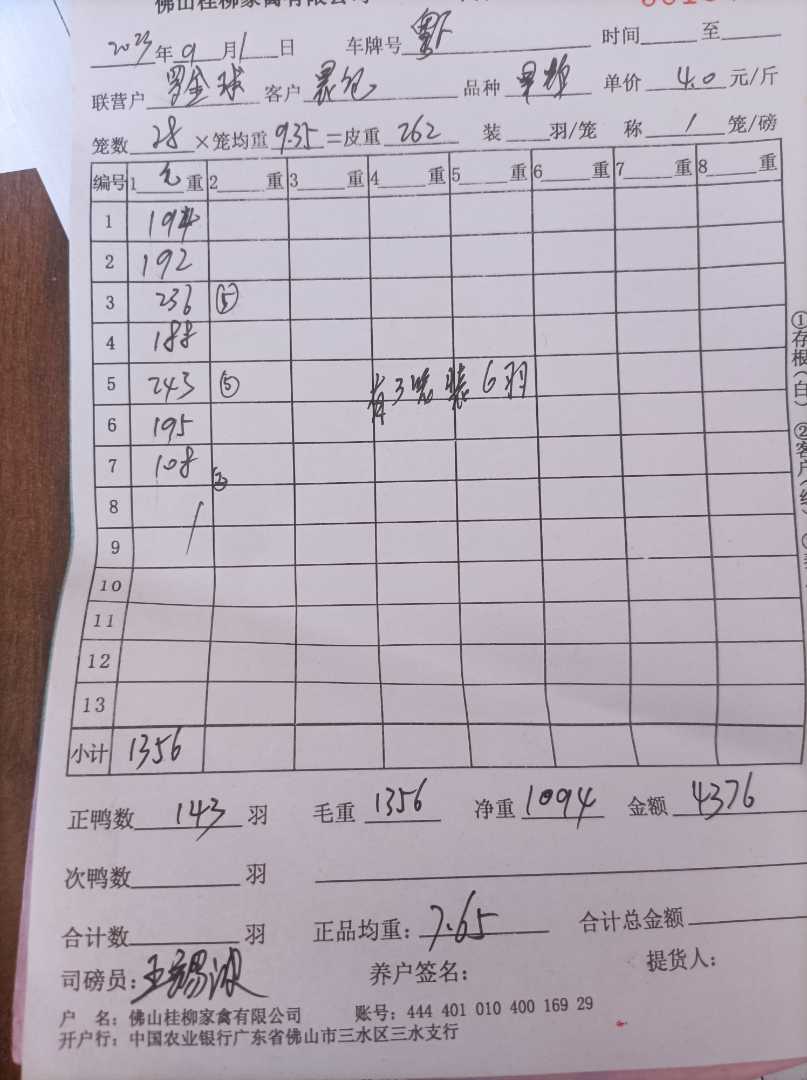 佛山桂柳家禽有限公司
2023年9月1日 车牌号 时间 至
联营户 罗金球 客户 品种 单价 4.0 元/斤
笼数 28 ×笼均重 9.35 =皮重 262 装 羽/笼 称 1 笼/磅
编号 1 毛 重 2 重 3 重 4 重 5 重 6 重 7 重 8 重
1 194
2 192
3 236 ⑤
4 188
5 243 ⑤ 有3笼装6羽
6 195
7 108 ②
8
9
10
11
12
13
小计 1356
正鸭数 143 羽 毛重 1356 净重 1094 金额 4376
次鸭数 羽
合计数 羽 正品均重: 7.65 合计总金额
司磅员: 王锡波 养户签名: 提货人:
户 名: 佛山桂柳家禽有限公司 账号: 444 401 010 400 169 29
开户行: 中国农业银行广东省佛山市三水区三水支行
①存根(白) ②客户(红)